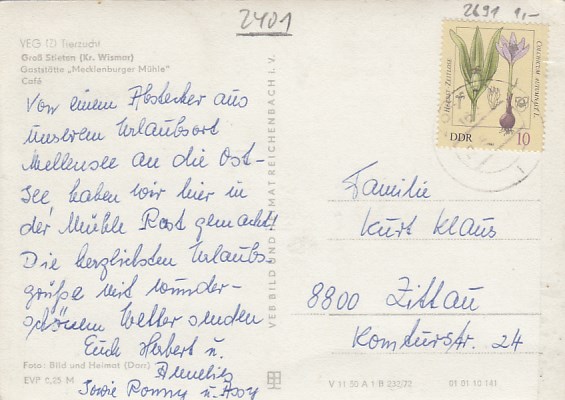 2401
2691 1,-
VEG (Z) Tierzucht
Groß Stieten (Kr. Wismar)
Gaststätte „Mecklenburger Mühle"
Café
Von einem Abstecher aus
unserem Urlaubsort
Mellensee an die Ost-
see, haben wir hier in
der Mühle Rast gemacht!
Die herzlichsten Urlaubs-
grüße mit wunder-
schönem Wetter senden
Euch Herbert u.
Annelies
sowie Ronny u.
Foto: Bild und Heimat (Dorr)
EVP 0,25 M
VEB BILD UND HEIMAT REICHENBACH I. V.
Herbst-Zeitlose
Colchicum autumnale L.
DDR 10
Familie
Kurt Klaus
8800 Zittau
Komturstr. 24
V 11 50 A 1 B 232/72 01 01 10 141